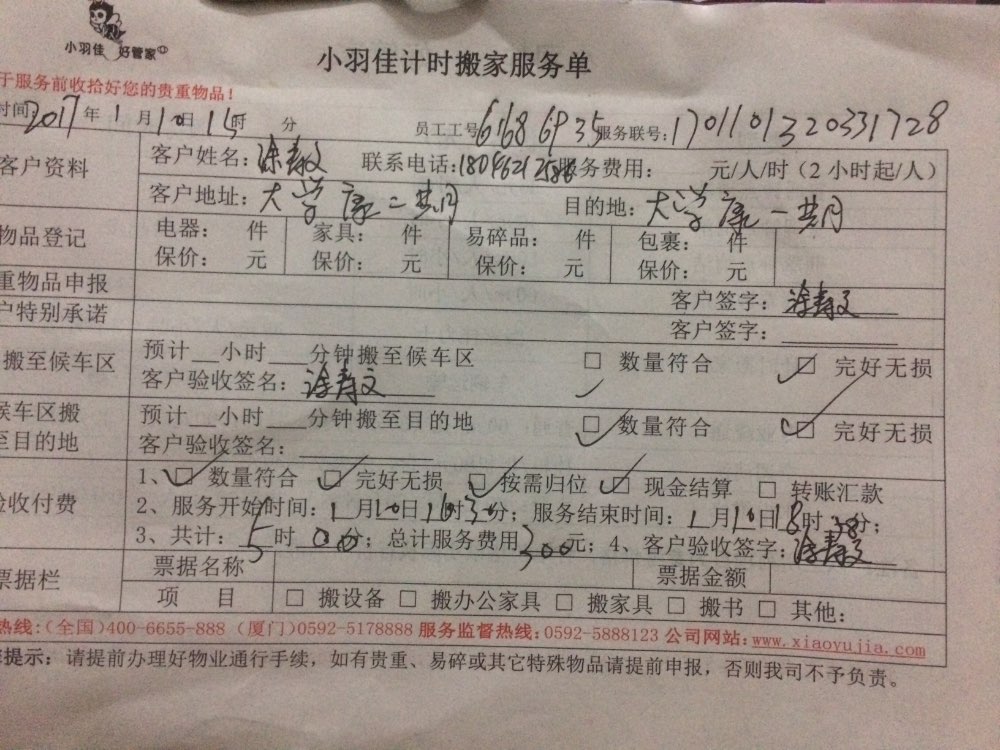 小羽佳 好管家
小羽佳计时搬家服务单
于服务前收拾好您的贵重物品！
时间：2017年1月10日15时 分 员工工号 61686935 服务联号：1701101320331728
客户资料 客户姓名：涂寿文 联系电话： 服务费用： 元/人/时（2小时起/人）
客户地址：大学康二共同 目的地：大学康一共同
物品登记 电器： 件 家具： 件 易碎品： 件 包裹： 件
保价： 元 保价： 元 保价： 元 保价： 元
重物品申报 客户签字：涂寿文
户特别承诺 客户签字：
搬至候车区 预计__小时___分钟搬至候车区 □ 数量符合 □ 完好无损
客户验收签名：涂寿文
候车区搬至目的地 预计__小时___分钟搬至目的地 □ 数量符合 □ 完好无损
客户验收签名：
验收付费 1、□ 数量符合 □ 完好无损 □ 按需归位 □ 现金结算 □ 转账汇款
2、服务开始时间：1月10日16时30分；服务结束时间：1月10日18时38分；
3、共计：5时00分；总计服务费用300元；4、客户验收签字：涂寿文
票据栏 票据名称 票据金额
项 目 □ 搬设备 □ 搬办公家具 □ 搬家具 □ 搬书 □ 其他：
热线：(全国)400-6655-888 (厦门)0592-5178888 服务监督热线：0592-5888123 公司网站：www.xiaoyujia.com
提示：请提前办理好物业通行手续，如有贵重、易碎或其它特殊物品请提前申报，否则我司不予负责。